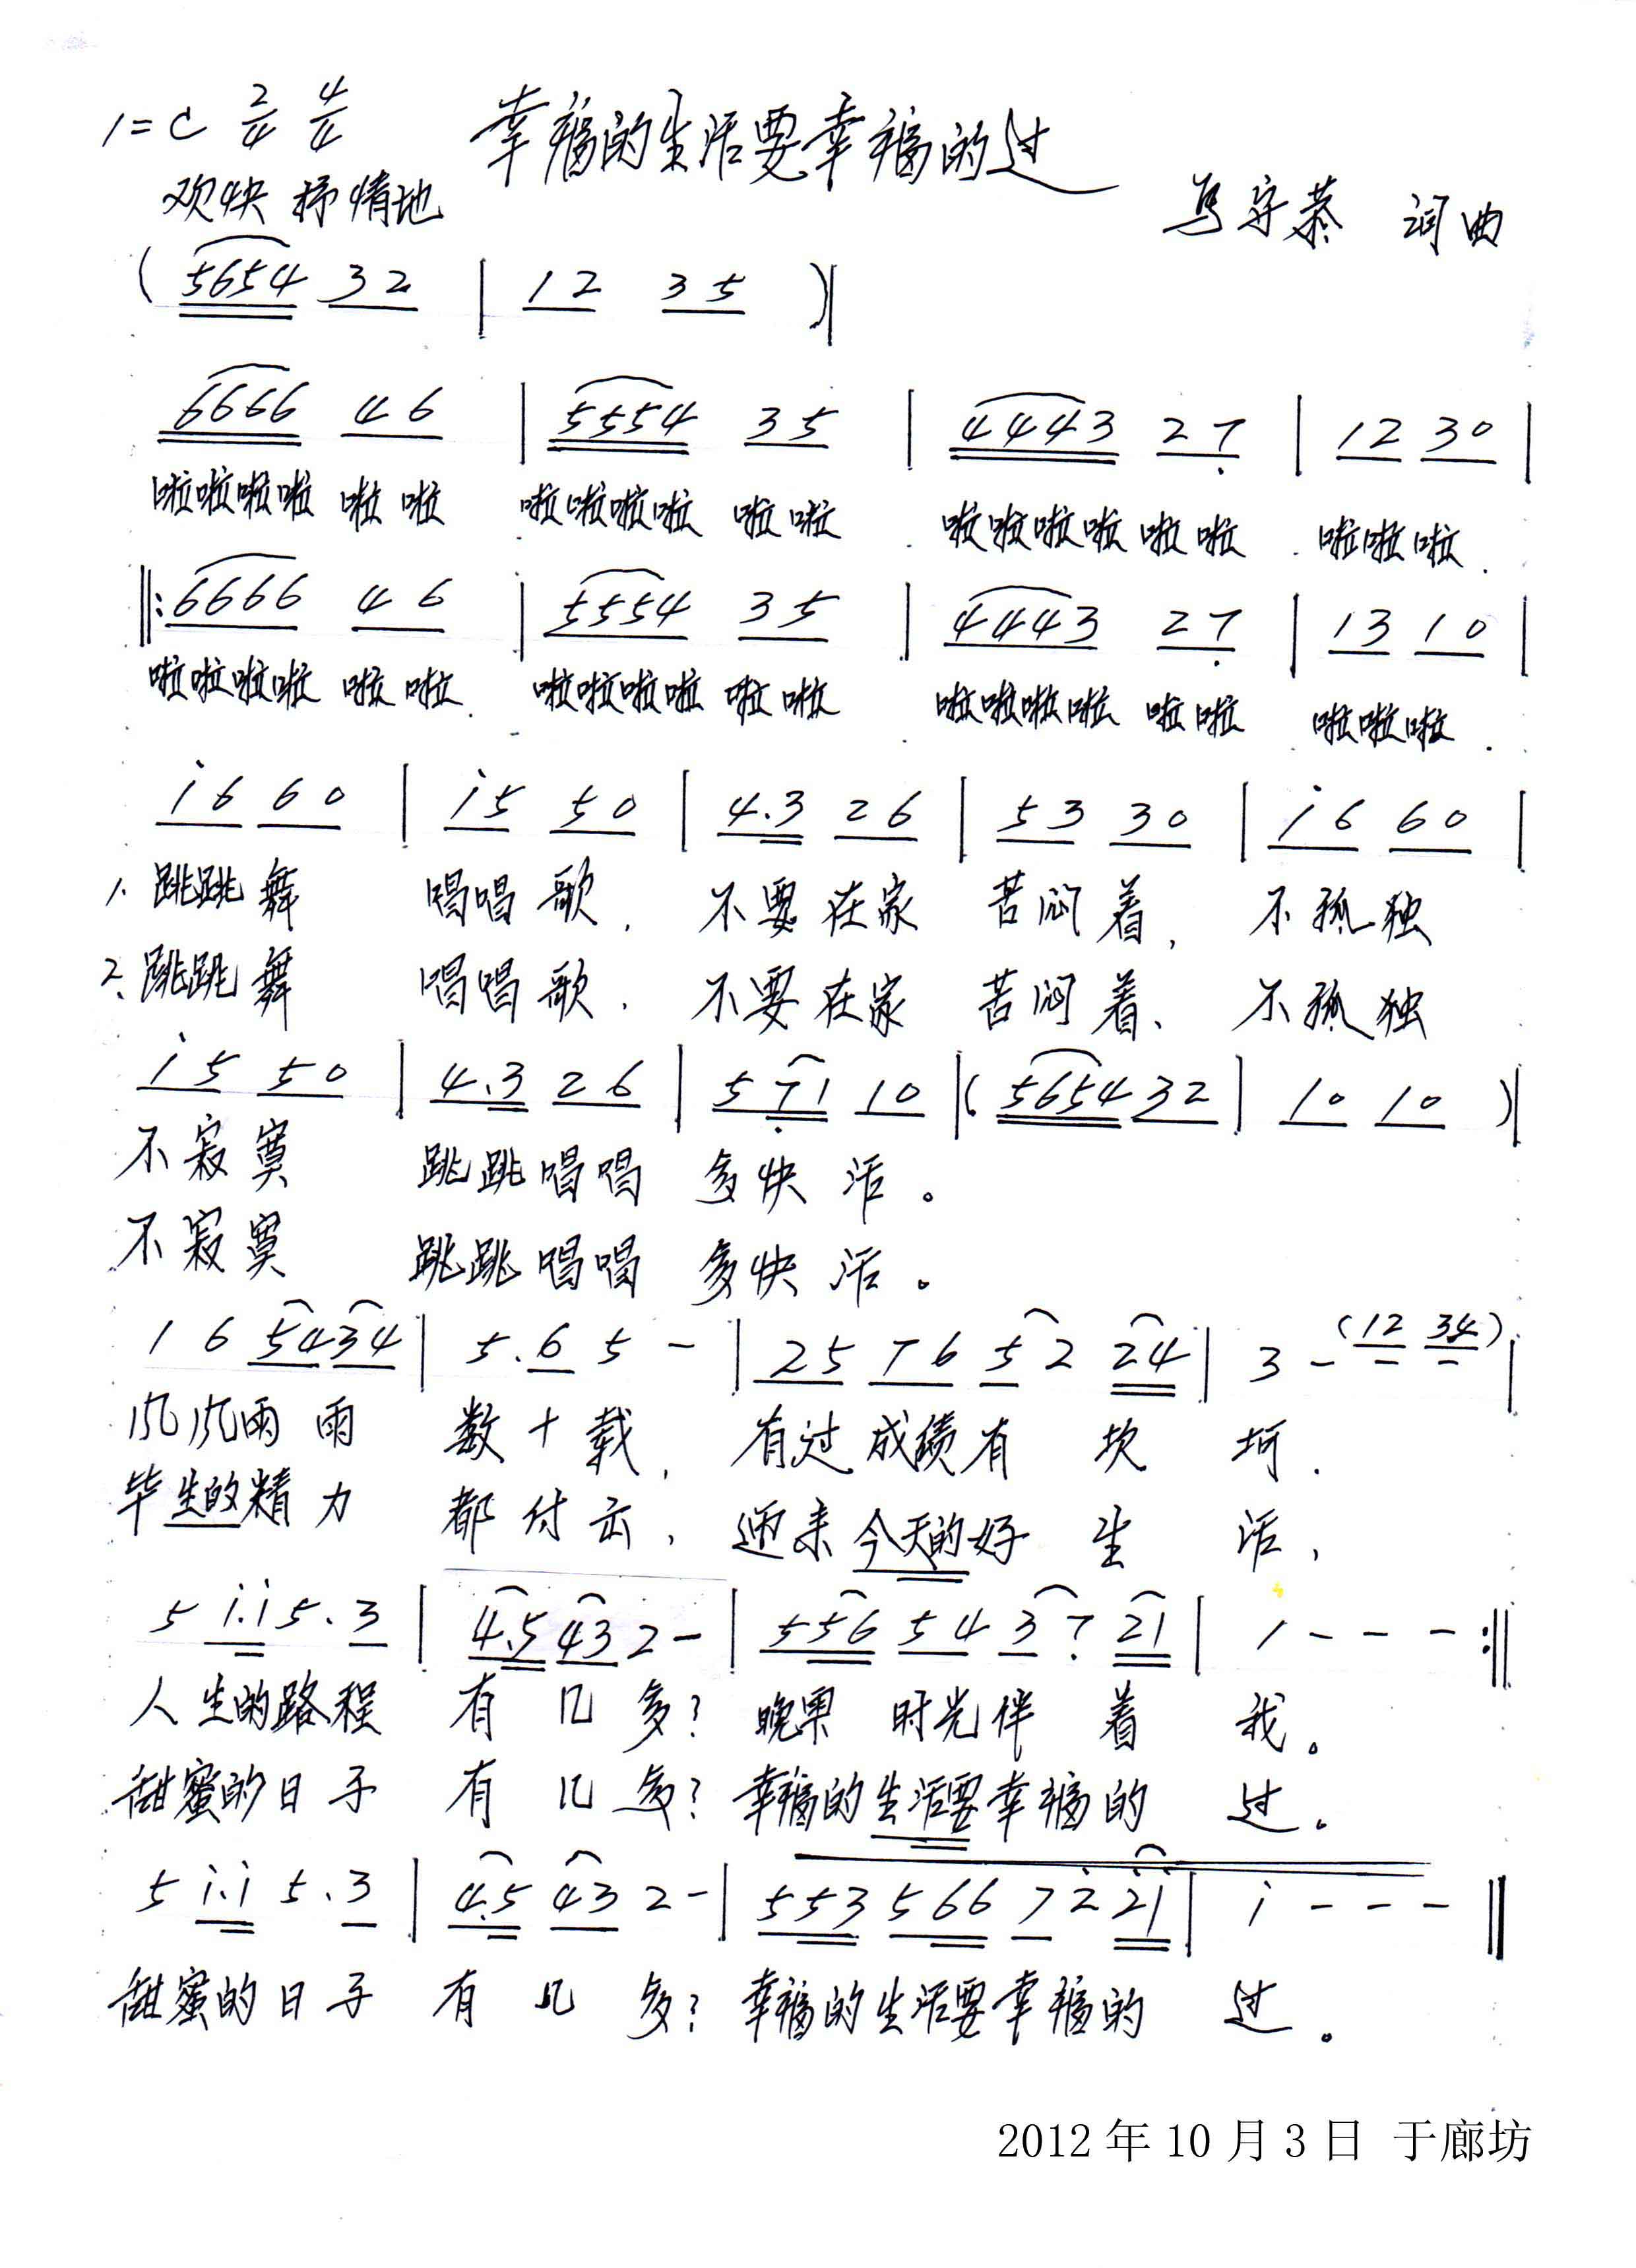 1=C 2/4 4/4 幸福的生活要幸福的过
欢快 抒情地
马守恭 词曲
( 5654 32 | 12 35 )|
6666 46 | 5554 35 | 4443 27̣ | 12 30 |
啦啦啦啦 啦啦 啦啦啦啦 啦啦 啦啦啦啦 啦啦 啦啦啦.
‖:6666 46 | 5554 35 | 4443 27̣ | 13 10 |
啦啦啦啦 啦啦. 啦啦啦啦 啦啦 啦啦啦啦 啦啦 啦啦啦.
i6 60 | i5 50 | 4.3 26 | 53 30 | i6 60 |
1. 跳跳舞 唱唱歌, 不要在家 苦闷着, 不孤独
2. 跳跳舞 唱唱歌, 不要在家 苦闷着、 不孤独
i5 50 | 4.3 26 | 57̣1 10 |( 5654 32 | 10 10 )|
不寂寞 跳跳唱唱 多快活。
不寂寞 跳跳唱唱 多快活。
1 6 54 34 | 5.6 5 - | 25 76 52 24 | 3 - (12 34) |
风风雨雨 数十载, 有过成绩有坎坷.
毕生的精力 都付出, 迎来今天的好生活,
5 i.i 5.3 | 4.5 43 2 - | 556 54 37̣ 21 | 1 - - - :‖
人生的路程 有几多? 晚果时光伴着我。
甜蜜的日子 有几多? 幸福的生活要幸福的过。
5 i.i 5.3 | 4.5 43 2 - | 553 566 72̇ 2̇i | i - - - ‖
甜蜜的日子 有几多? 幸福的生活要幸福的过。
2012年10月3日 于廊坊